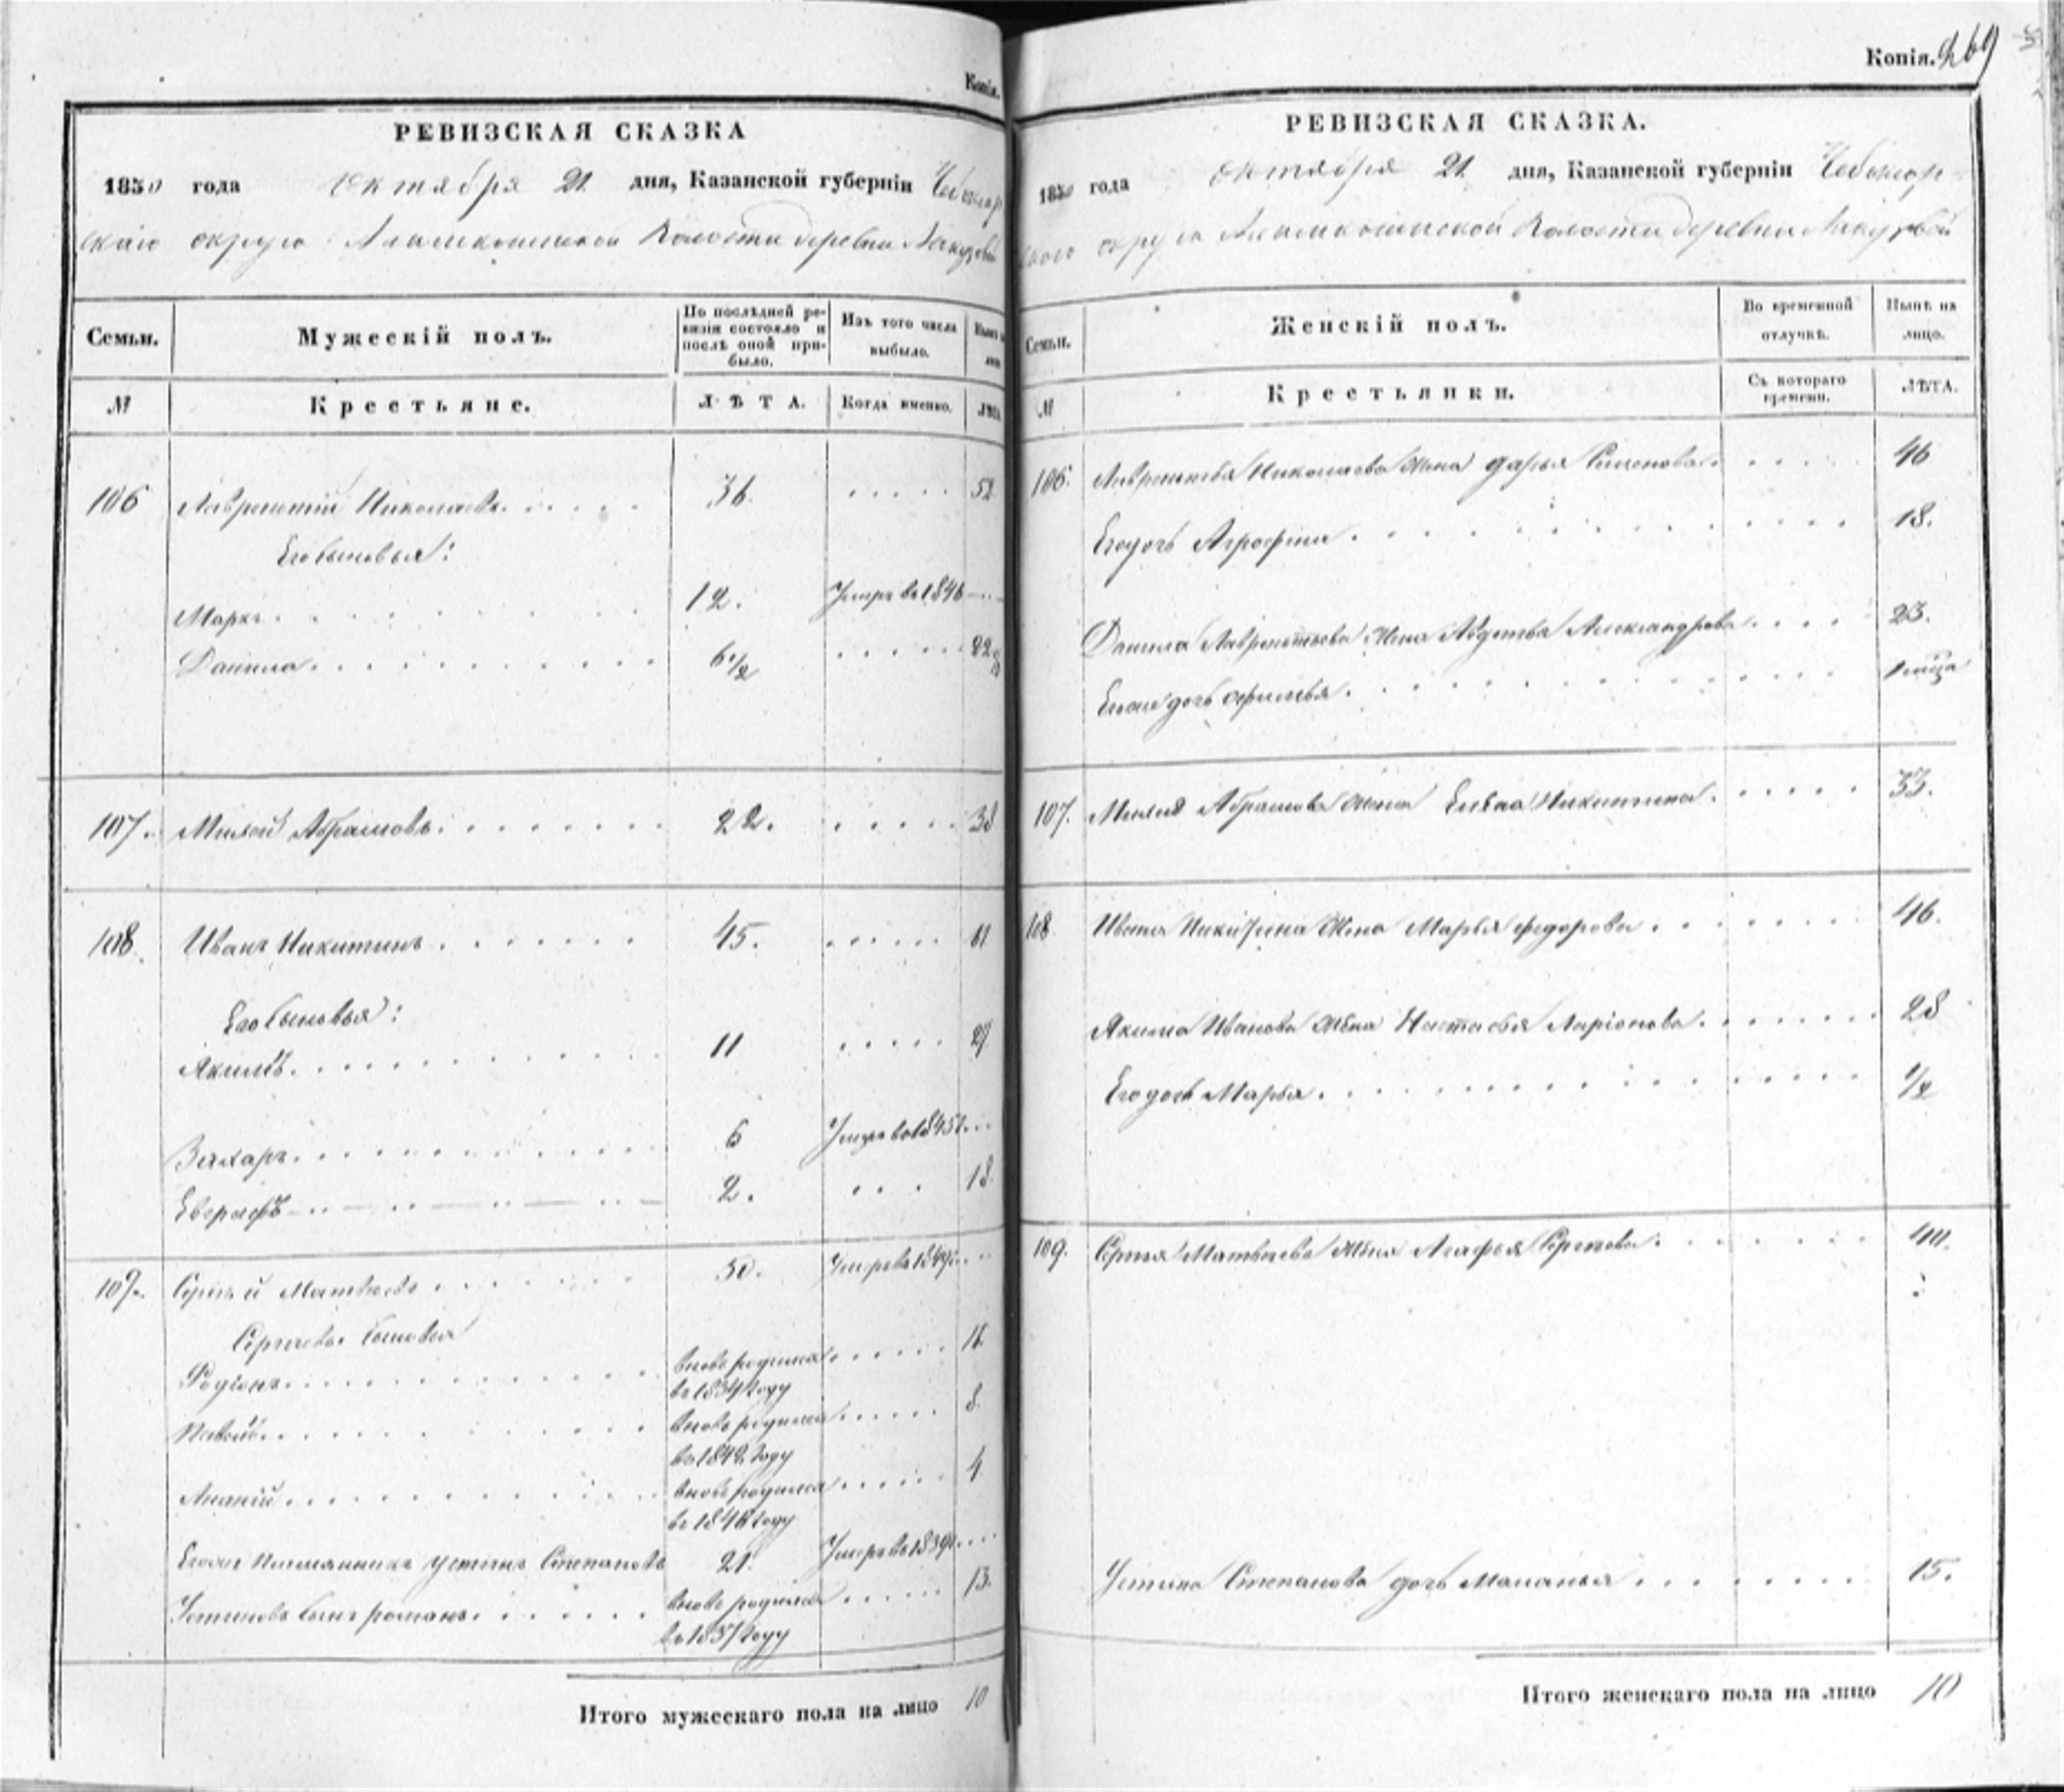 Копія.
РЕВИЗСКАЯ СКАЗКА
1850 года Октября 21 дня, Казанской губерніи Чебоксар
скаго округа Волости деревни
Семьи.
Мужескій полъ.
По послѣдней ревизіи состояло и послѣ оной прибыло.
Изъ того числа выбыло.
№
Крестьяне.
ЛѢТА.
Когда именно.
ЛѢТА
106 Лаврентій Николаевъ 36. 52
Его сыновья:
Марка 12. Умеръ въ 1846
Данила 6 1/2 22
107. Абрамовъ 22. 38
108. Иванъ Никитинъ 45. 61
Его сыновья:
Якимъ 11 27
Захаръ 6 Умеръ въ 1845
Евграфъ 2. 18
109. Сергей Матвеевъ 30. Умеръ въ 1849
Сергеевы сыновья
Родіонъ вновь родился 16
въ 1834 году
вновь родился 8
въ 1842 году
Ананій вновь родился 4
въ 1846 году
Племянникъ Устинъ Степановъ 21. Умеръ въ 1839
Устиновъ сынъ романъ вновь родился 13.
въ 1837 году
Итого мужескаго пола на лицо 10
Копія. 269
РЕВИЗСКАЯ СКАЗКА.
1850 года октября 21 дня, Казанской губерніи Чебоксар
скаго округа Волости деревни
Семьи.
Женскій полъ.
Во временной отлучкѣ.
Нынѣ на лицо.
№
Крестьянки.
Съ котораго времени.
ЛѢТА.
106. Лаврентья Николаева жена дарья Семенова 46
Его дочь Агрофина 18.
Данила Лаврентьева жена Авдотья Александрова 23.
дочь 1 мѣца
107. Абрамова жена Елена Никитина 33.
108 Ивана Никитина жена Марья федорова 46.
Якима Иванова жена Настасья Ларіонова 28
Его дочь Марья 1/2
109. Сергея Матвеева жена Агафья Сергеева 40.
Устина Степанова дочь Маланья 15.
Итого женскаго пола на лицо 10